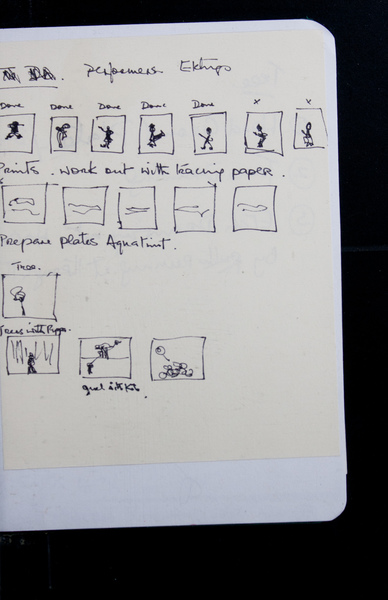 performers. Ektrips
Done Done Done Done Done x x
Prints. work out with tracing paper.
Prepare plates Aquatint.
Tree.
Trees with